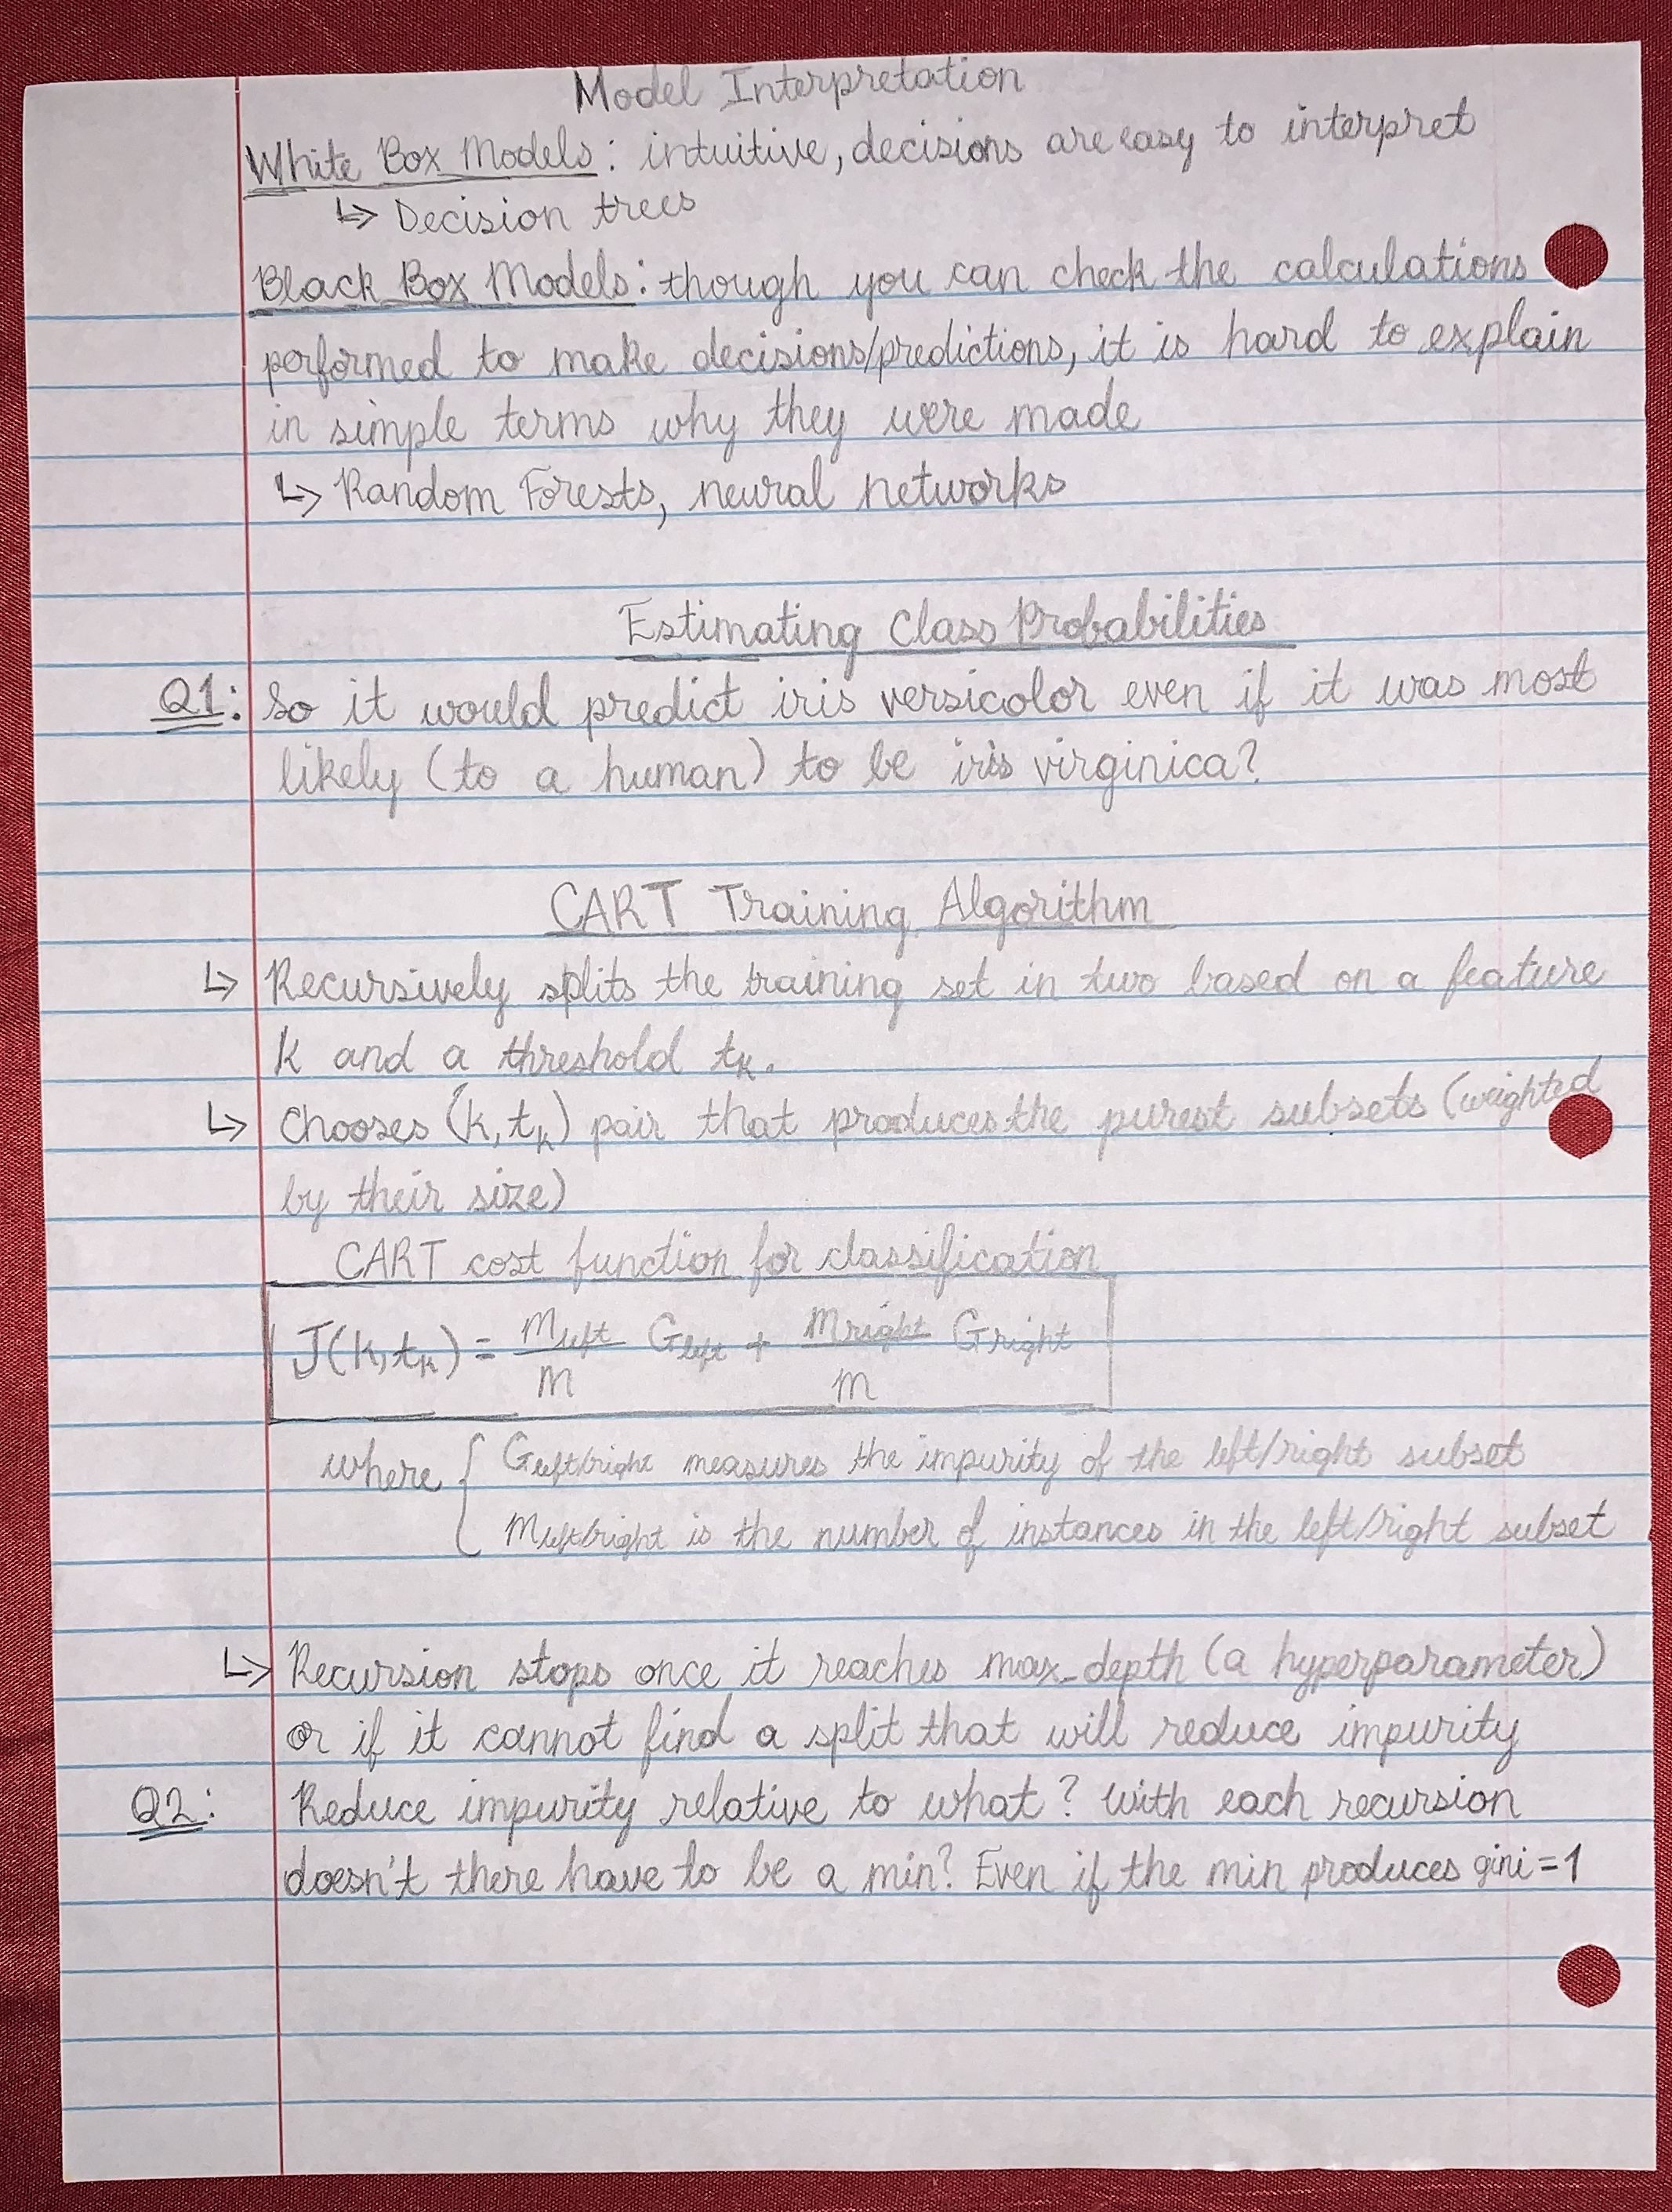 Model Interpretation
White Box Models: intuitive, decisions are easy to interpret
↳ Decision trees
Black Box Models: though you can check the calculations
performed to make decisions/predictions, it is hard to explain
in simple terms why they were made
↳ Random Forests, neural networks
Estimating Class Probabilities
Q1: So it would predict iris versicolor even if it was most
likely (to a human) to be iris virginica?
CART Training Algorithm
↳ Recursively splits the training set in two based on a feature
k and a threshold t_k.
↳ Chooses (k, t_k) pair that produces the purest subsets (weighted
by their size)
CART cost function for classification
J(k, t_k) = m_left/m G_left + m_right/m G_right
where { G_left/right measures the impurity of the left/right subset
m_left/right is the number of instances in the left/right subset
↳ Recursion stops once it reaches max_depth (a hyperparameter)
or if it cannot find a split that will reduce impurity
Q2: Reduce impurity relative to what? With each recursion
doesn't there have to be a min? Even if the min produces gini = 1